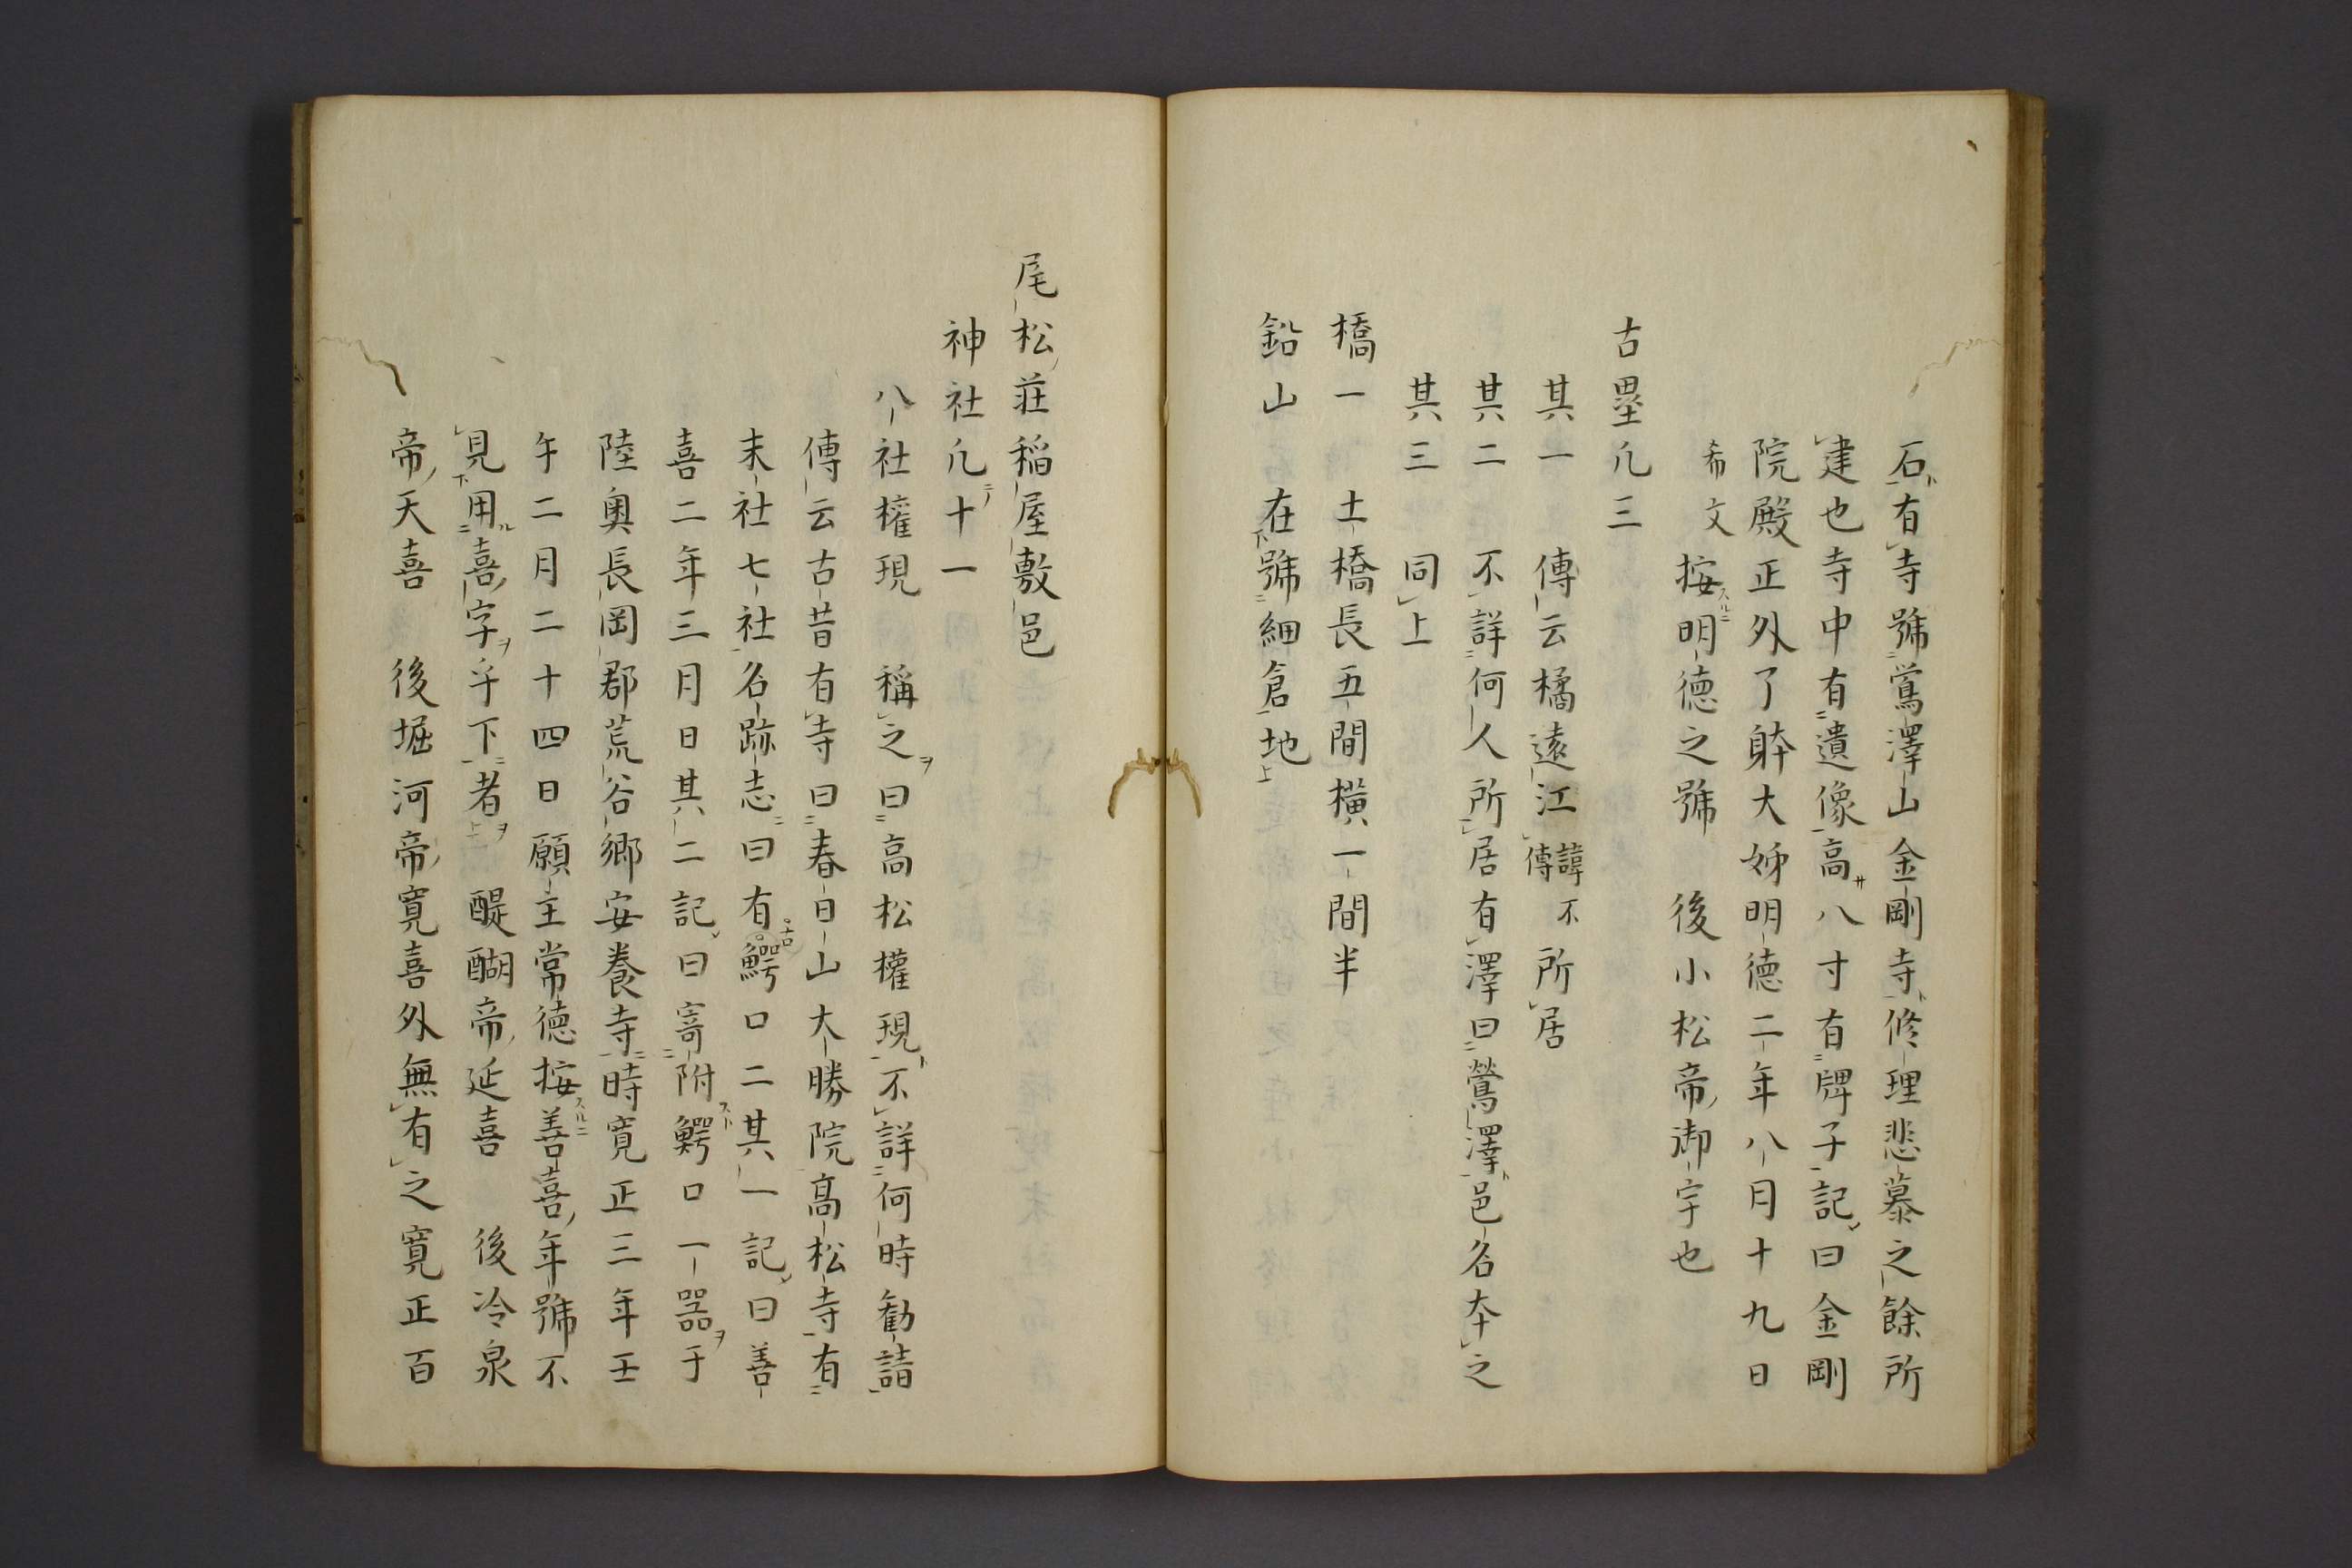 石有寺號鶯澤山金剛寺修理悲慕之餘所
建也寺中有遺像高八寸有牌子記曰金剛
院殿正外了躰大姉明德二年八月十九日
希文 按明德之號 後小松帝御宇也
古壘凡三
其一 傳云橘遠江諱不傳所居
其二 不詳何人所居有澤曰鶯澤邑名本之
其三 同上
橋一 土橋長五間橫一間半
鉛山 在號細倉地
尾松莊稲屋敷邑
神社凡十一
八社權現 稱之曰高松權現不詳何時勧請
傳云古昔有寺曰春日山大勝院高松寺有
末社七社名跡志曰有古鰐口二其一記曰善
喜二年三月日其二記曰寄附鰐口一器于
陸奥長岡郡荒谷郷安養寺時寛正三年壬
午二月二十四日願主常德按善喜年號不
見用喜字乎下者 醍醐帝延喜 後冷泉
帝天喜 後堀河帝寛喜外無有之寛正百